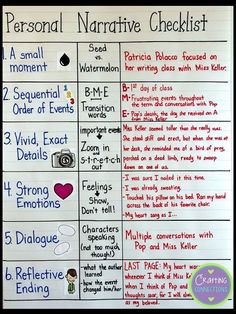 Personal Narrative Checklist
1. A small moment
Seed
vs.
Watermelon
Patricia Polacco focused on
her writing class with Miss Keller.
2. Sequential
Order of Events
B-M-E
Transition
words
B- 1st day of class
M- Frustrating events throughout
the term and conversations with Pop
E- Pop's death, the day she received an A
from Miss Keller
3. Vivid, Exact
Details
important events
Zoom in
s-t-r-e-t-c-h
out
Miss Keller seemed taller than she really was.
She stood stiff and erect, but when she was at
her desk, she reminded me of a bird of prey,
perched on a dead limb, ready to swoop
down on one of us.
4. Strong
Emotions
Feelings
Show,
Don't tell!
- I was sure I nailed it this time.
- I was already sweating.
- Touched his pillow on his bed. Ran my hand
across the back of his favorite chair.
- My heart sang as I...
5. Dialogue
Characters
speaking
(not too much,
though!)
Multiple conversations with
Pop and Miss Keller
6. Reflective
Ending
- what the author
learned
- how the event
changed him/her
LAST PAGE: My heart
whenever I think of Miss
when I think of Pop
thoughts soar, for I will
always be
Crafting
Connections